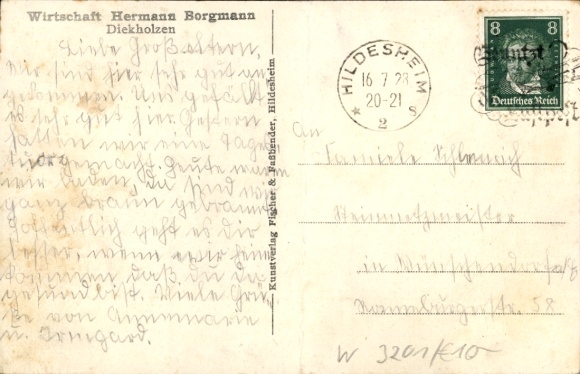 Wirtschaft Hermann Borgmann
Diekholzen
Liebe Großeltern,
Wir sind hier sehr gut an
gekommen. Uns gefällt
es sehr gut hier. Gestern
hatten wir eine Tages
gemacht. Heute waren
wir baden, da sind wir
ganz braun gebrannt.
Hoffentlich geht es dir
besser, wenn wir heim
kommen daß du da
gesund bist. Viele Grü
ße von Annemarie
u. Irmgard.
Kunstverlag Fischer & Faßbender, Hildesheim
HILDESHEIM
16 7 28
20-21
* 2 s
8 8
Deutsches Reich
Benutzt
Luftpost
An
Familie
Steinmetzmeister
in Münschendorf
Ronneburgerstr. 58
W 3201/€10-